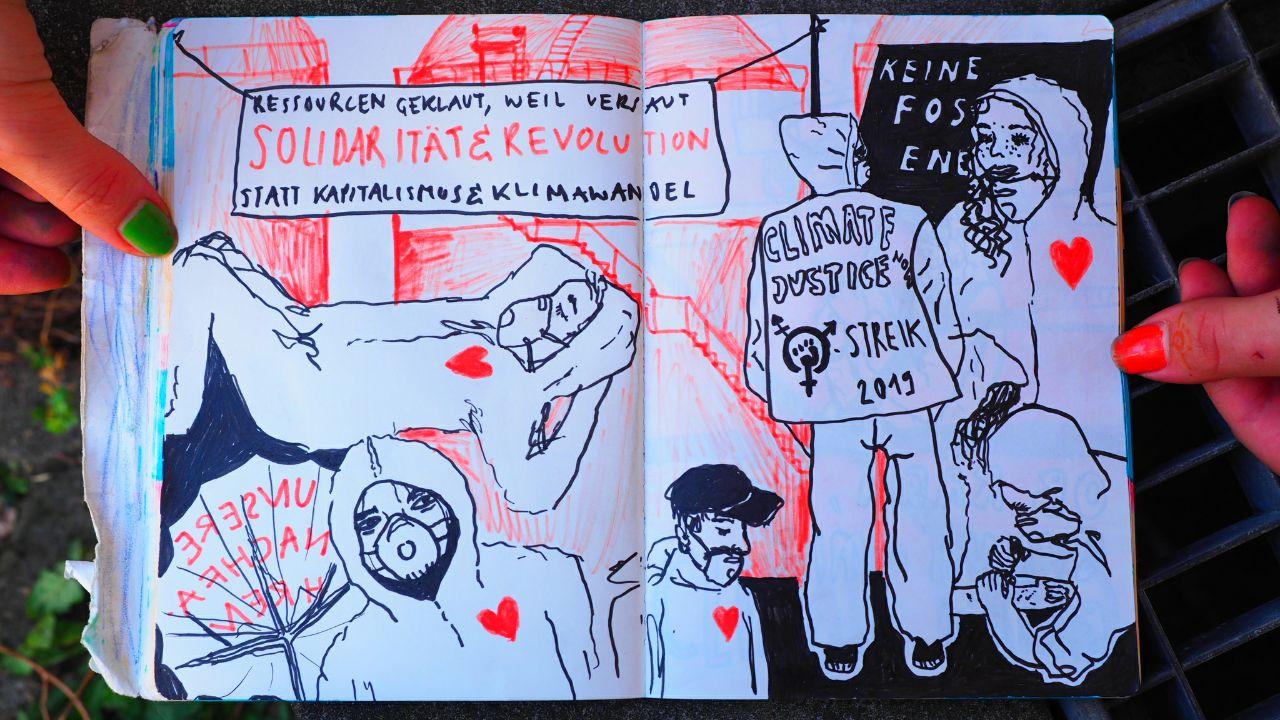 RESSOURCEN GEKLAUT, WEIL VERSAUT
SOLIDARITÄT & REVOLUTION
STATT KAPITALISMUS & KLIMAWANDEL
KEINE
FOS
ENE
CLIMATE
JUSTICE NOW
STREIK
2019
UNSERE